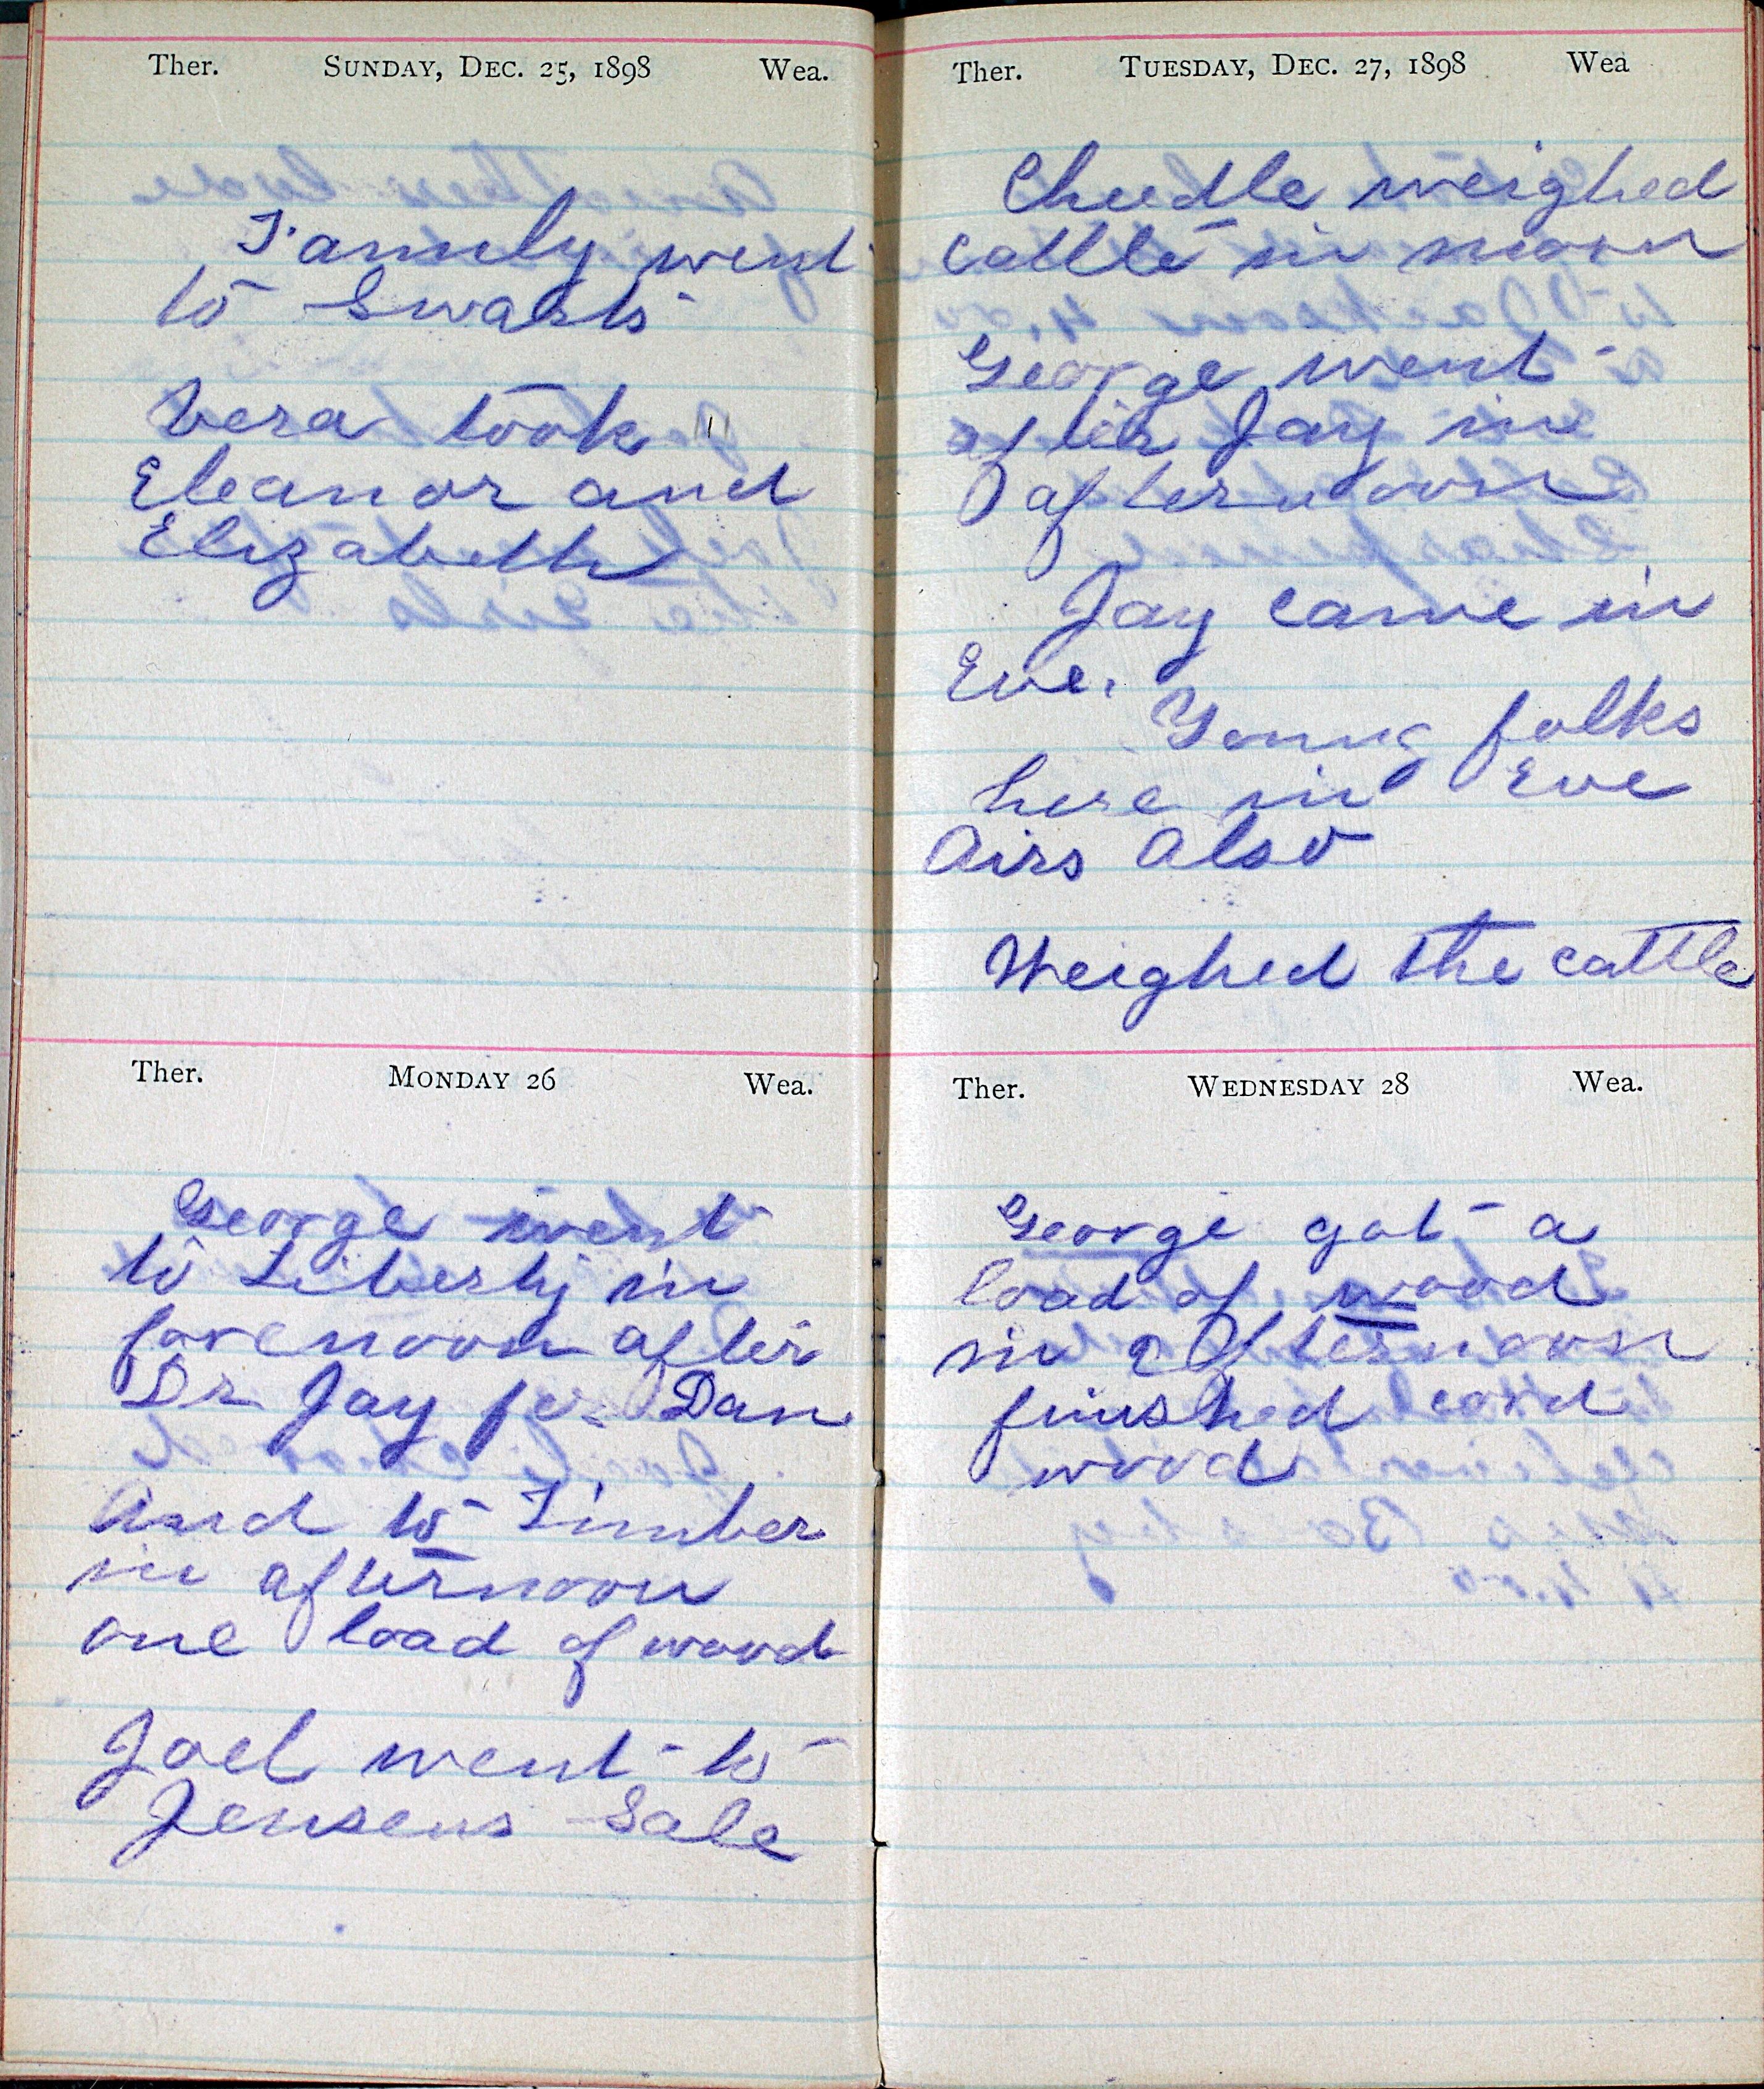 Ther. SUNDAY, DEC. 25, 1898 Wea.
Family went
to Swarts
Vera took
Eleanor and
Elizabeth
Ther. MONDAY 26 Wea.
George went
to Liberty in
forenoon after
Dr Jay for Dan
And to Timber
in afternoon
one load of wood
Joel went to
Jensens Sale
Ther. TUESDAY, DEC. 27, 1898 Wea
Cheedle weighed
cattle in morn
George went
after Jay in
afternoon
Jay came in
Eve.
Young folks
here in Eve
Airs Also
Weighed the cattle
Ther. WEDNESDAY 28 Wea.
George got a
load of wood
in afternoon
finished cord
wood